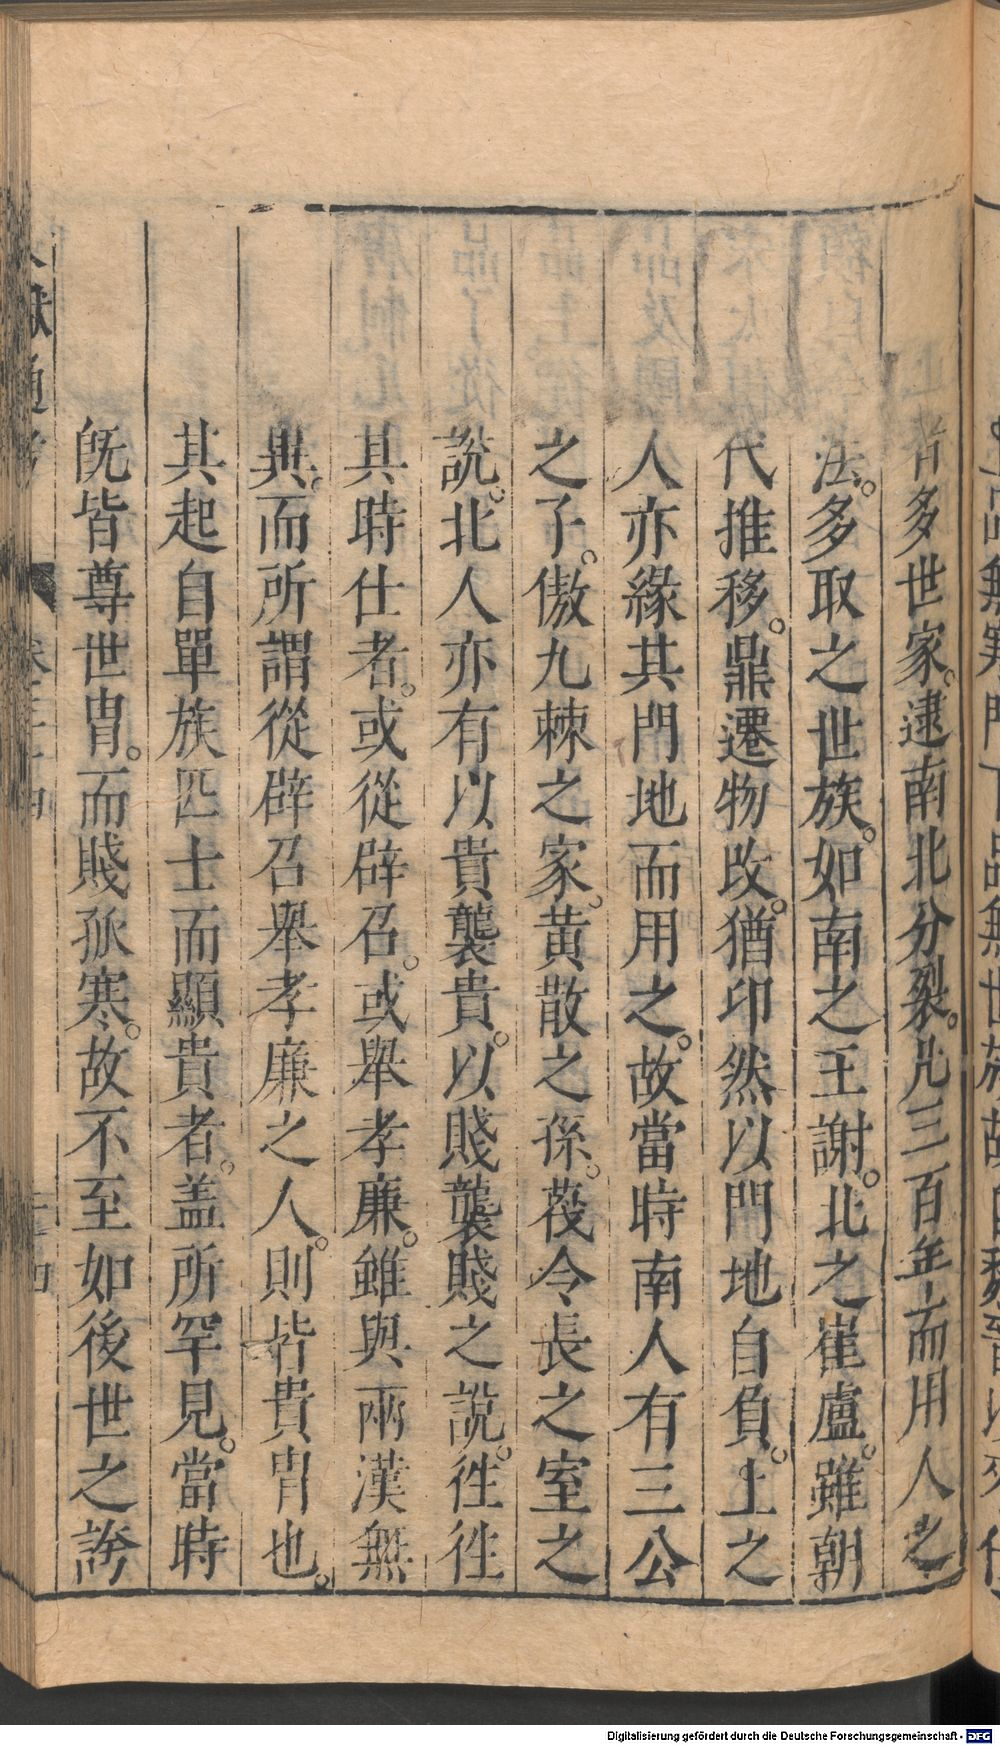 者多世家逮南北分裂。凡三百年。而用人之
法。多取之世族。如南之王謝。北之崔盧。雖朝
代推移。鼎遷物改。猶卬然以門地自負。上之
人亦緣其門地而用之。故當時南人有三公
之子。傲九棘之家。黃散之孫。蔑令長之室之
說。北人亦有以貴襲貴。以賤襲賤之說。徃徃
其時仕者。或從辟召。或舉孝廉。雖與兩漢無
異。而所謂從辟召舉孝廉之人。則皆貴胄也。
其起自單族匹士而顯貴者。盖所罕見。當時
旣皆尊世胄。而賤孤寒。故不至如後世之誇
獻通考
Digitalisierung gefördert durch die Deutsche Forschungsgemeinschaft - DFG